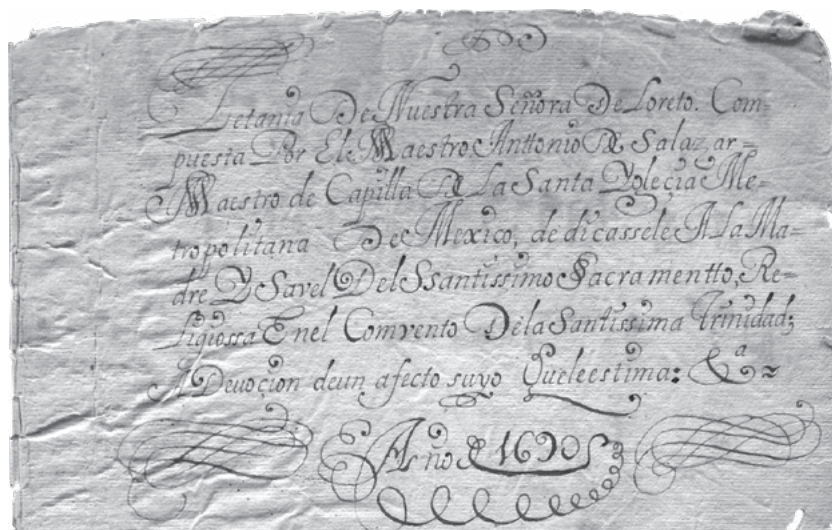 Letania De Nuestra Señora De Loreto. Com-
puesta Por El Maestro Anttonio De Salazar=
Maestro de Capilla De La Santa Ygleçia Me-
tropolitana De Mexico, dedicassele A La Ma-
dre YSavel Del SSantissimo Sacramentto, Re-
ligiossa Enel Comvento Dela Santissima Trinidad;
A Devoçion deun afecto suyo Queleestima: &a
Año de 1690